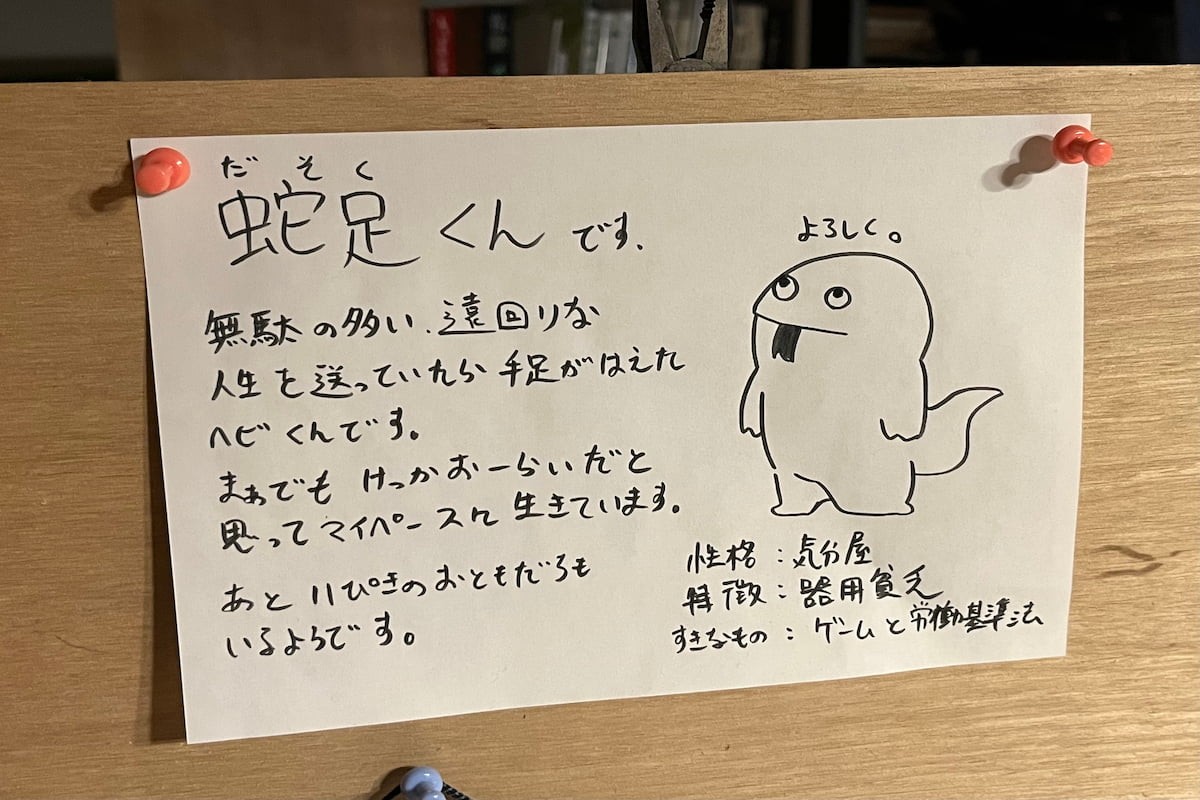 だそく
蛇足くんです.
無駄の多い、遠回りな
人生を送っていたら手足がはえた
ヘビくんです。
まぁでも けっかおーらいだと
思ってマイペースに生きています。
あと 11ぴきのおともだちも
いるようです。
よろしく。
性格：気分屋
特徴：器用貧乏
すきなもの：ゲームと労働基準法